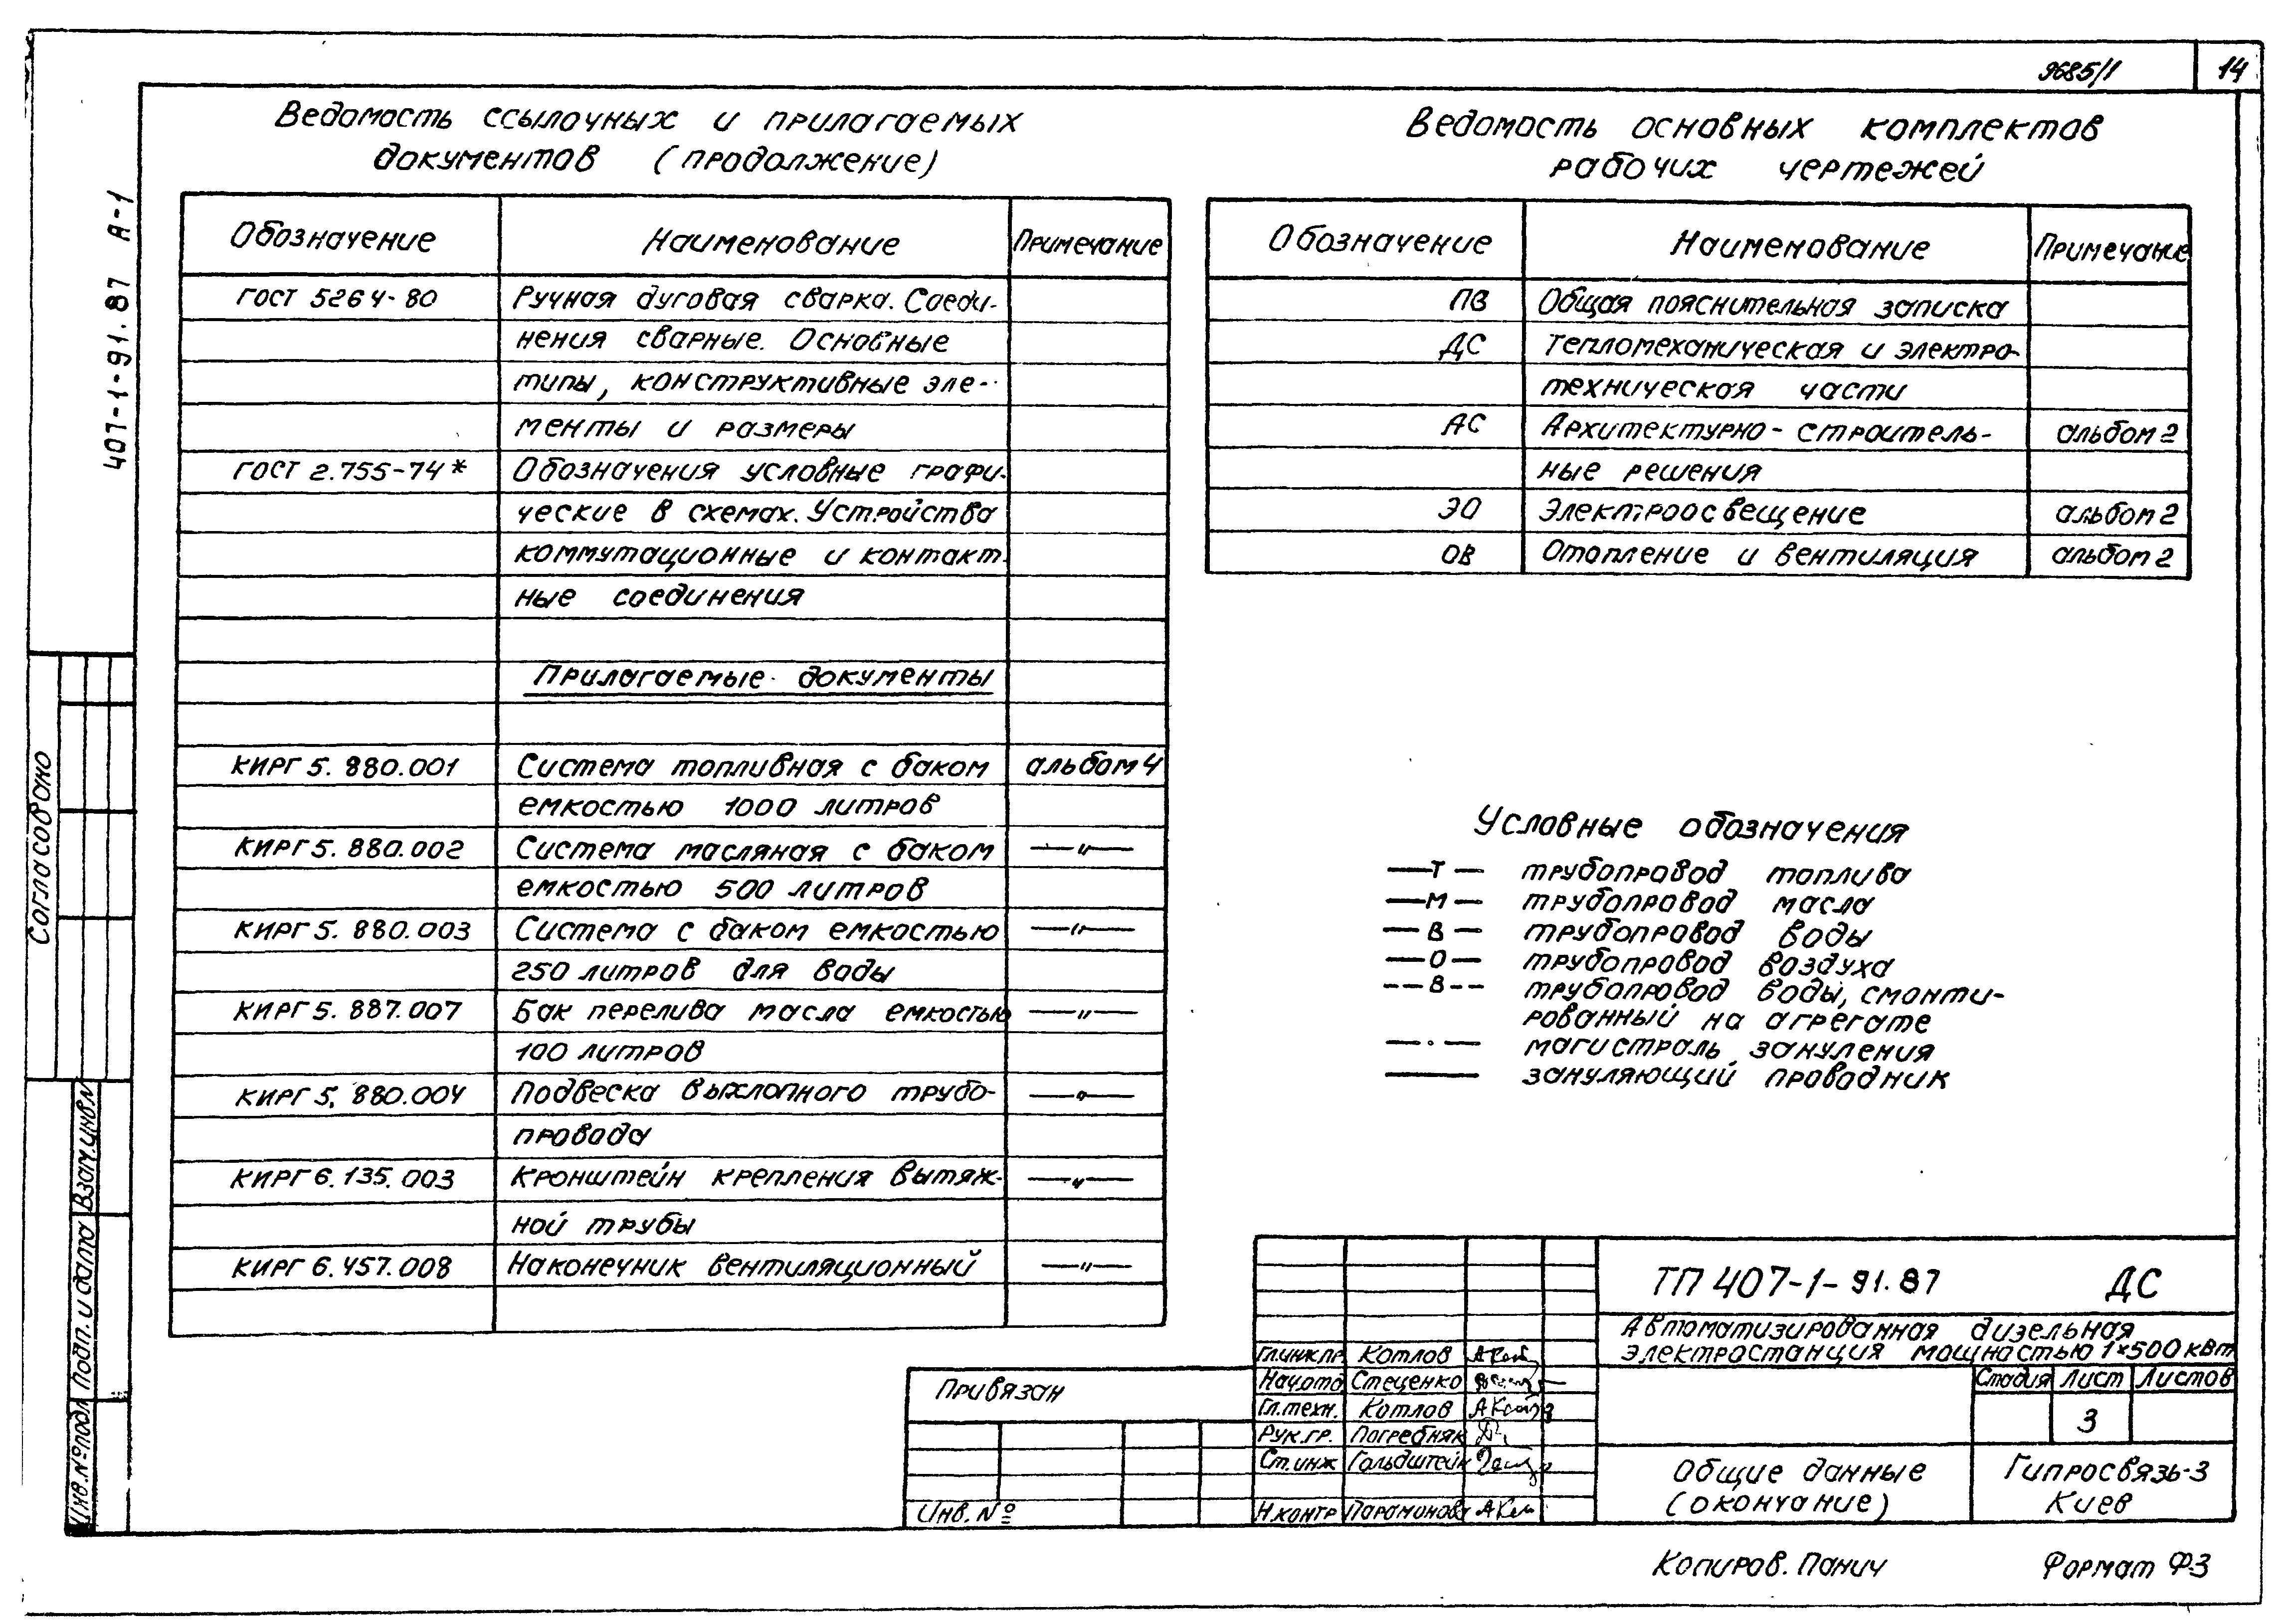 9685/1 14
Ведомость ссылочных и прилагаемых
документов (продолжение)
Обозначение Наименование Примечание
ГОСТ 5264-80 Ручная дуговая сварка. Соеди-
нения сварные. Основные
типы, конструктивные эле-
менты и размеры
ГОСТ 2.755-74* Обозначения условные графи-
ческие в схемах. Устройства
коммутационные и контакт-
ные соединения
Прилагаемые документы
КИРГ 5.880.001 Система топливная с баком альбом 4
емкостью 1000 литров
КИРГ 5.880.002 Система масляная с баком —"—
емкостью 500 литров
КИРГ 5.880.003 Система с баком емкостью —"—
250 литров для воды
КИРГ 5.887.007 Бак перелива масла емкостью —"—
100 литров
КИРГ 5.880.004 Подвеска выхлопного трубо- —"—
провода
КИРГ 6.135.003 Кронштейн крепления вытяж- —"—
ной трубы
КИРГ 6.457.008 Наконечник вентиляционный —"—
Ведомость основных комплектов
рабочих чертежей
Обозначение Наименование Примечание
ПВ Общая пояснительная записка
ДС Тепломеханическая и электро-
техническая части
АС Архитектурно-строитель- альбом 2
ные решения
ЭО Электроосвещение альбом 2
ОВ Отопление и вентиляция альбом 2
Условные обозначения
—Т— трубопровод топлива
—М— трубопровод масла
—В— трубопровод воды
—О— трубопровод воздуха
--В-- трубопровод воды, смонти-
рованный на агрегате
—·— магистраль зануления
—— зануляющий проводник
407-1-91.87 А-1
Согласовано
Инв.№подл. Подп. и дата Взам.инв.№
Привязан
Инв. №
Гл.инж.пр. Котлов
Нач.отд Стеценко
Гл.техн. Котлов
Рук.гр. Погребняк
Ст.инж Гольдштейн
Н.контр Парамонова
ТП 407-1-91.87 ДС
Автоматизированная дизельная
электростанция мощностью 1×500 кВт
Стадия Лист Листов
3
Общие данные
(окончание)
Гипросвязь-3
Киев
Копиров. Панич Формат Ф3